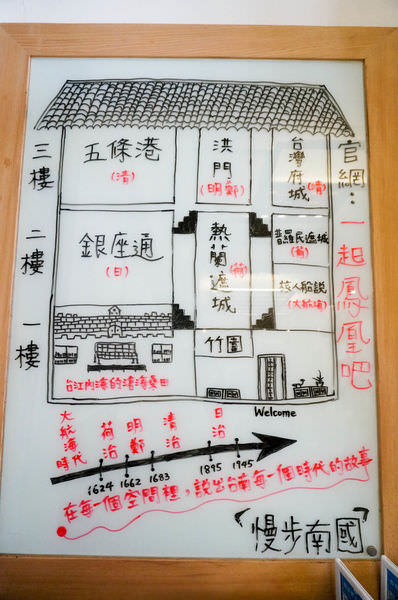 三樓
五條港
(清)
洪門
(明鄭)
台灣府城
(清)
官網:一起鳳凰吧
二樓
銀座通
(日)
熱蘭遮城
(荷)
普羅民遮城
(荷)
旅人船說
(大航海)
一樓
台江內海的滄海桑田
竹圍
Welcome
大航海時代
荷治
明鄭
清治
日治
1624
1662
1683
1895
1945
在每一個空間裡,說出台南每一個時代的故事
『慢步南國』